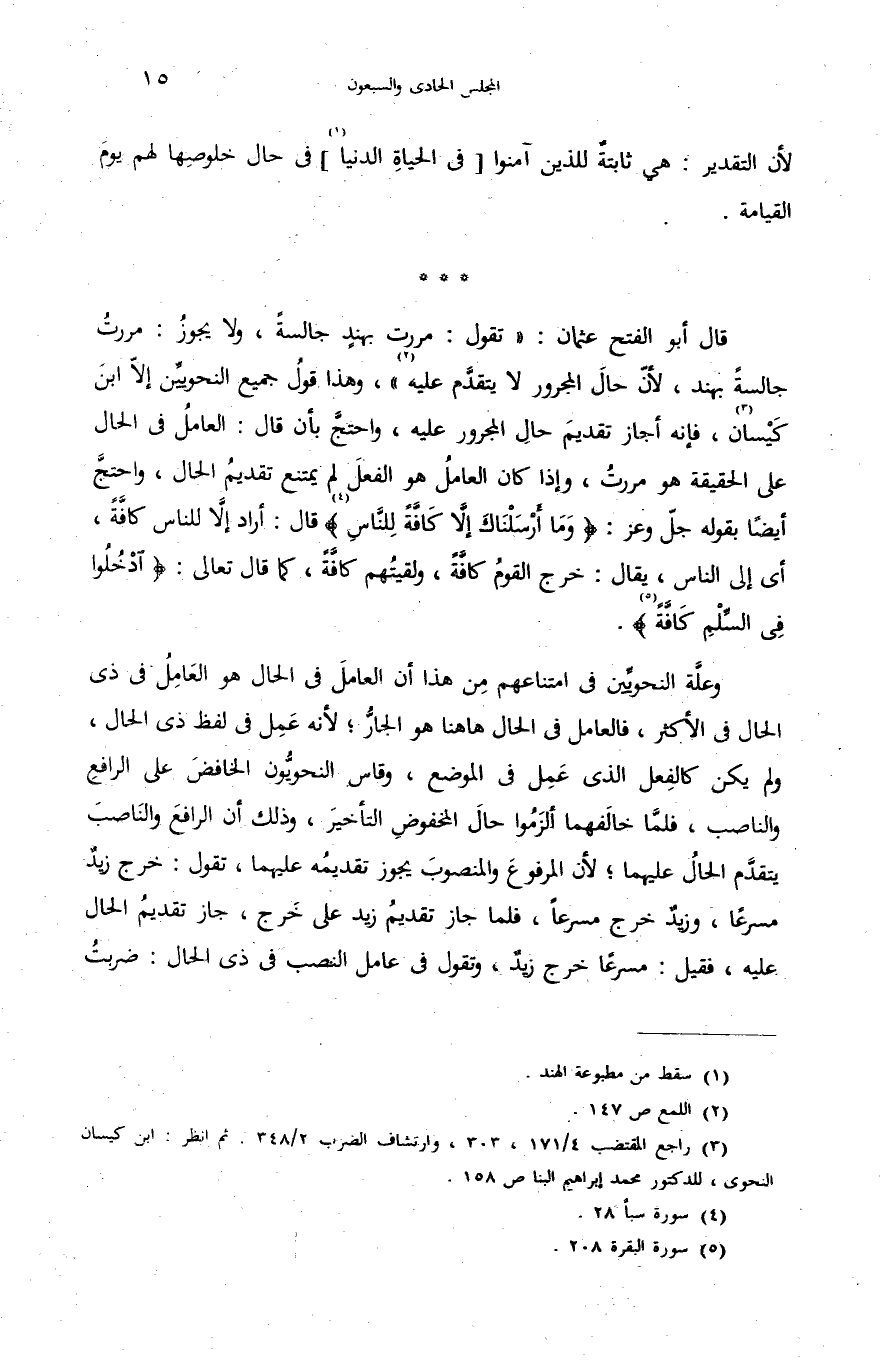 المجلس الحادى والسبعون ١٥
لأن التقدير : هي ثابتةٌ للذين آمنوا [ فى الحياةِ الدنيا (١) ] فى حال خلوصِها لهم يومَ
القيامة .
* * *
قال أبو الفتح عثمان : « تقول : مررت بهندٍ جالسةً ، ولا يجوزُ : مررتُ
جالسةً بهند ، لأنّ حالَ المجرور لا يتقدَّم عليه (٢) » ، وهذا قولُ جميع النحويِّين إلاّ ابنَ
كَيْسان (٣) ، فإنه أجاز تقديمَ حالِ المجرور عليه ، واحتجَّ بأن قال : العاملُ فى الحال
على الحقيقة هو مررتُ ، وإذا كان العاملُ هو الفعلَ لم يمتنع تقديمُ الحال ، واحتجَّ
أيضًا بقوله جلّ وعز : ﴿ وَمَا أَرْسَلْنَاكَ إِلَّا كَافَّةً لِلنَّاسِ (٤) ﴾ قال : أراد إلَّا للناس كافَّةً ،
أى إلى الناس ، يقال : خرج القومُ كافَّةً ، ولقيتُهم كافَّةً ، كما قال تعالى : ﴿ ٱدْخُلُوا
فِى السِّلْمِ كَافَّةً (٥) ﴾ .
وعلَّة النحويِّين فى امتناعهم مِن هذا أن العاملَ فى الحال هو العَامِلُ فى ذى
الحال فى الأكثر ، فالعامل فى الحال هاهنا هو الجارُّ ؛ لأنه عَمِل فى لفظ ذى الحال ،
ولم يكن كالفِعل الذى عَمِل فى الموضع ، وقاس النحويُّون الخافضَ على الرافعِ
والناصب ، فلمَّا خالَفهما ألزَمُوا حالَ المخفوضِ التأخيرَ ، وذلك أن الرافعَ والنَاصبَ
يتقدَّم الحالُ عليهما ؛ لأن المرفوعَ والمنصوبَ يجوز تقديمُه عليهما ، تقول : خرج زيدٌ
مسرعًا ، وزيدٌ خرج مسرعاً ، فلما جاز تقديمُ زيد على خَرج ، جاز تقديمُ الحال
عليه ، فقيل : مسرعًا خرج زيدٌ ، وتقول فى عامل النصب فى ذى الحال : ضربتُ
(١) سقط من مطبوعة الهند .
(٢) اللمع ص ١٤٧ .
(٣) راجع المقتضب ١٧١/٤ ، ٣٠٣ ، وارتشاف الضرب ٣٤٨/٢ . ثم انظر : ابن كيسان
النحوى ، للدكتور محمد إبراهيم البنا ص ١٥٨ .
(٤) سورة سبأ ٢٨ .
(٥) سورة البقرة ٢٠٨ .